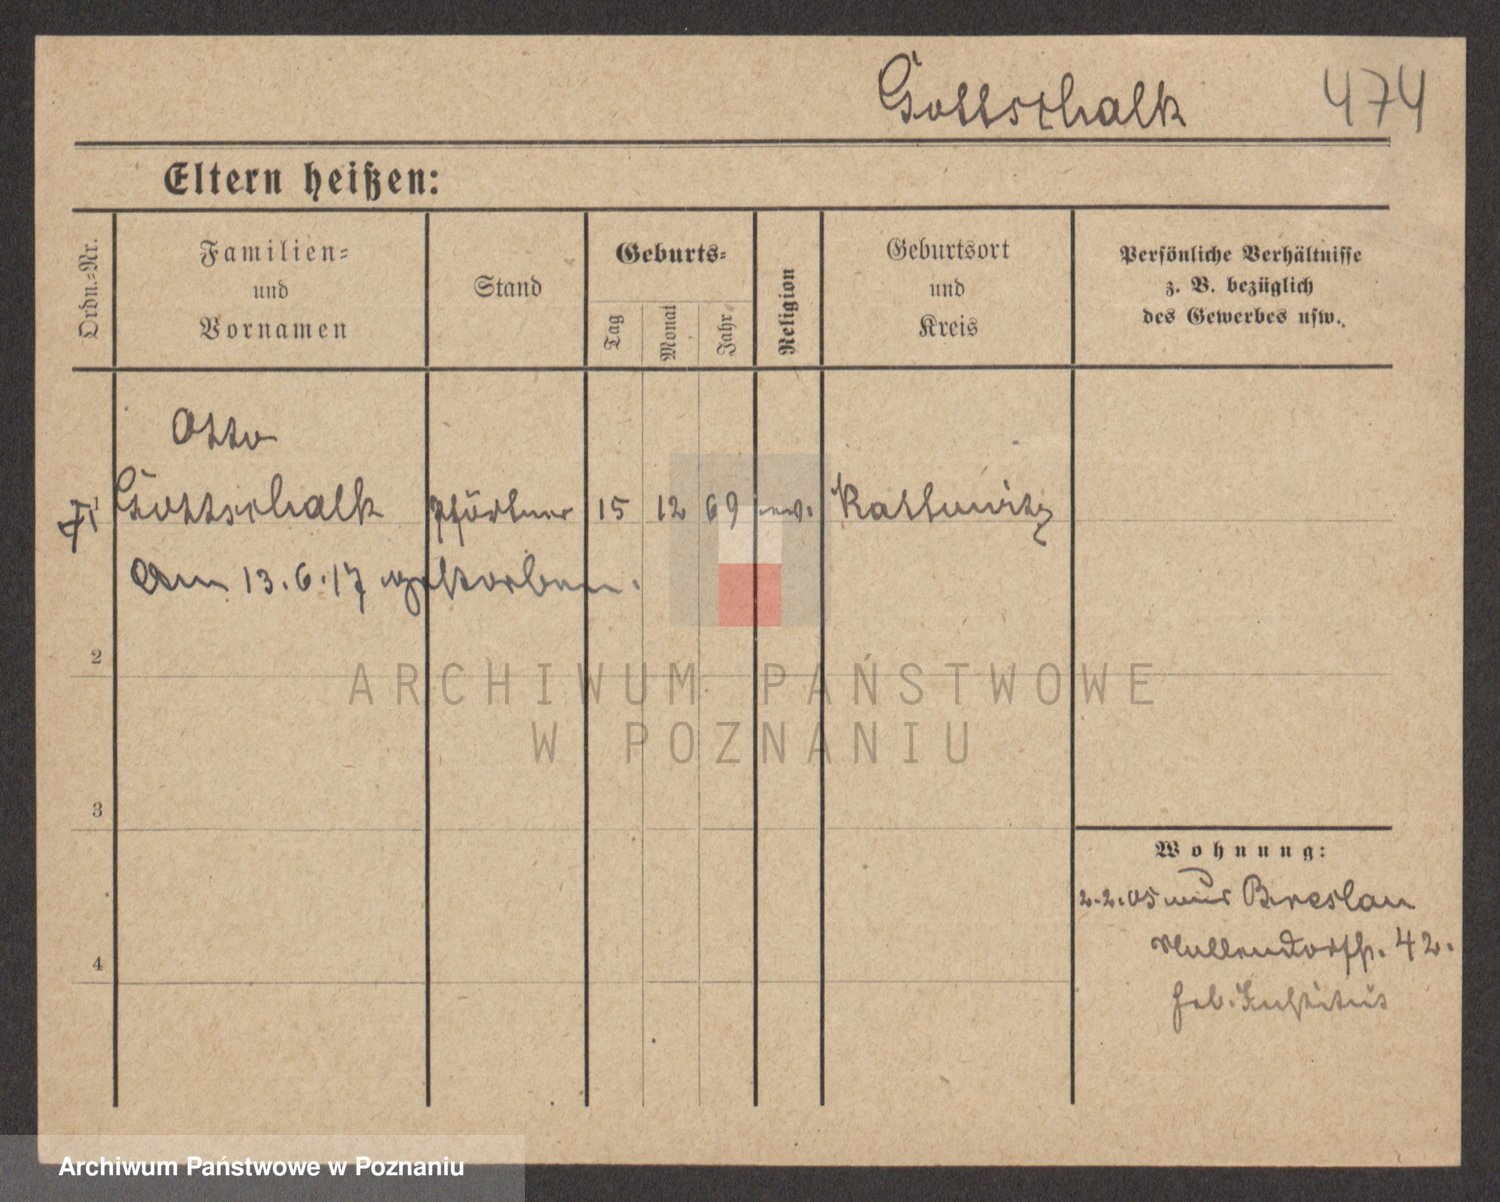 Gottschalk 474
Eltern heißen:
Ordn.=Nr.
Familien=
und
Vornamen
Stand
Geburts=
Tag
Monat
Jahr
Religion
Geburtsort
und
Kreis
Persönliche Verhältnisse
z. B. bezüglich
des Gewerbes usw.
Otto
1 Gottschalk Pförtner 15 12 69 ev. Kattowitz
Am 13.6.17 gestorben.
2
ARCHIWUM PAŃSTWOWE
W POZNANIU
3
Wohnung:
2.2.05 aus Breslau
42.
Institut
4
Archiwum Państwowe w Poznaniu